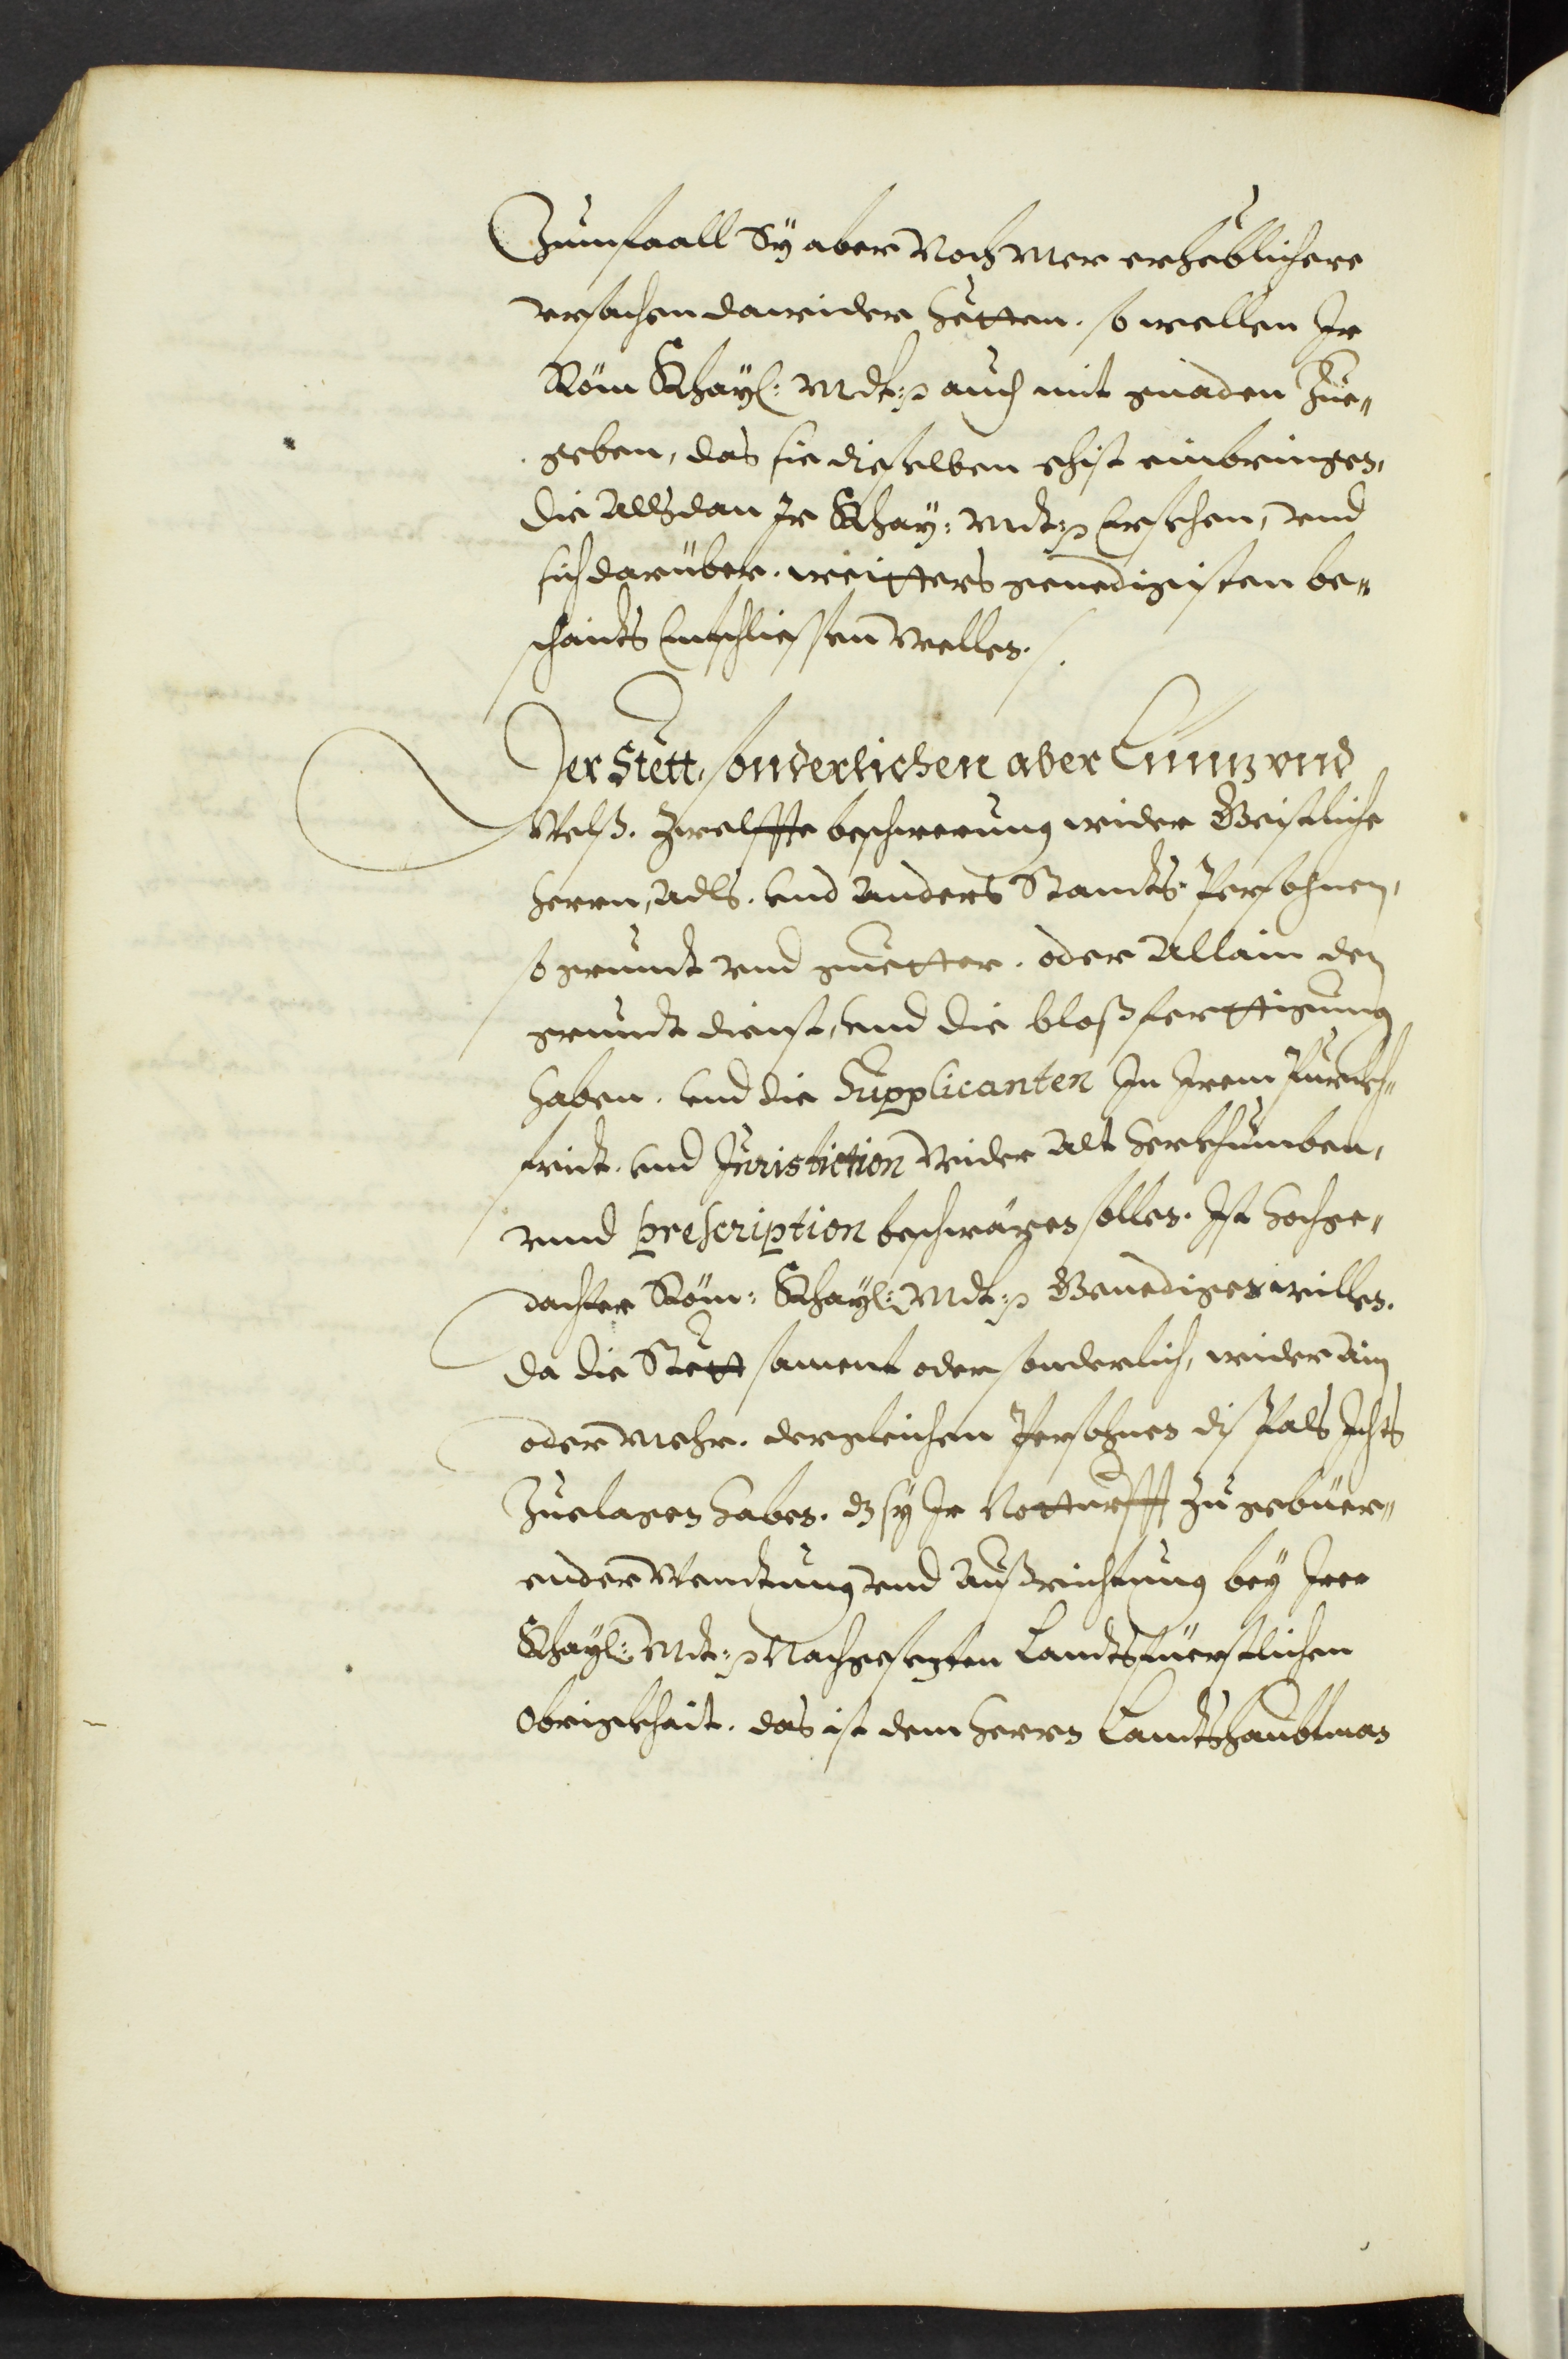 Zumfaall Sÿ aber Noch Mer erheblichere
vrsachen darwider hetten. so wellen Ir
Röm Khaÿ: Mdt: auch mit gnaden Zue„
geben, das sie dieselben ehist einbringen,
die Allsdan Ir Khay: Mdt: Ersehen, vnd
sich darüber. weitters genedigisten be„
schaidts Entschliessen Wellen.
Der Stett, sonderlichen aber Linnz vnd
Welß. Zwelffte beschwerung wider Geistliche
Herrn, Adls. vnd Anders Standts Persohnen,
so grundt vnd guetter. oder Allain den
grundt dienst, vnd die bloß ferttigung
haben. vnd die Supplicanten In Irem Purckh„
fridt. vnd Jurisdiction Wider Alt herkhumben,
vnnd prescription beschwären sollen. Ist hochge„
dachter Röm: Khayl: Mdt: Genediger willen.
da die Stett sament oder sonderlich, wider Ain
oder Mehr. dergleichen Persohnen diß Fals Ichts
Zuclagen haben. dz sy Ir Notturfft zu gebüer„
ender Wendtung vnd Außrichtung bey Irer
Khayl: Mdt: Nachgesezten Landtsfüerstlichen
Obrigkhait. das ist dem Herrn Landtshaubtman